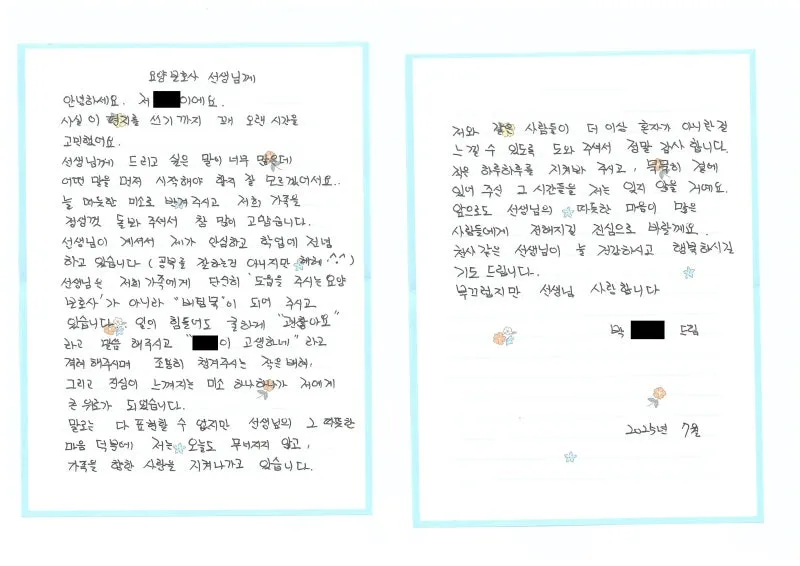 요양보호사 선생님께
안녕하세요. 저 이에요.
사실 이 편지를 쓰기 까지 꽤 오랜 시간을
고민했어요.
선생님께 드리고 싶은 말이 너무 많은데
어떤 말을 먼저 시작해야 할지 잘 모르겠어서요..
늘 따뜻한 미소로 반겨주시고 저희 가족을
정성껏 돌봐 주셔서 참 많이 고맙습니다.
선생님이 계셔서 제가 안심하고 학업에 전념
하고 있습니다 (공부를 잘하는건 아니지만 헤헤 ^.^)
선생님은 저희 가족에게 단순히 '도움을 주시는 요양
보호사'가 아니라 "버팀목"이 되어 주시고
있습니다. 일이 힘들어도 굳하게 "괜찮아요"
라고 말씀 해주시고 " 이 고생하네" 라고
격려 해주시며 조용히 챙겨주시는 작은 배려,
그리고 진심이 느껴지는 미소 하나하나가 저에게
큰 위로가 되었습니다.
말로는 다 표현할 수 없지만 선생님의 그 따뜻한
마음 덕분에 저는 오늘도 무너지지 않고,
가족을 향한 사랑을 지켜나가고 있습니다.
저와 같은 사람들이 더 이상 혼자가 아니란걸
느낄 수 있도록 도와 주셔서 정말 감사합니다.
작은 하루하루를 지켜봐 주시고, 묵묵히 곁에
있어 주신 그 시간들을 저는 잊지 않을 거예요.
앞으로도 선생님의 따뜻한 마음이 많은
사람들에게 전해지길 진심으로 바랄께요.
천사 같은 선생님이 늘 건강하시고 행복하시길
기도 드립니다.
부끄럽지만 선생님 사랑합니다
박 드림
2025년 7월